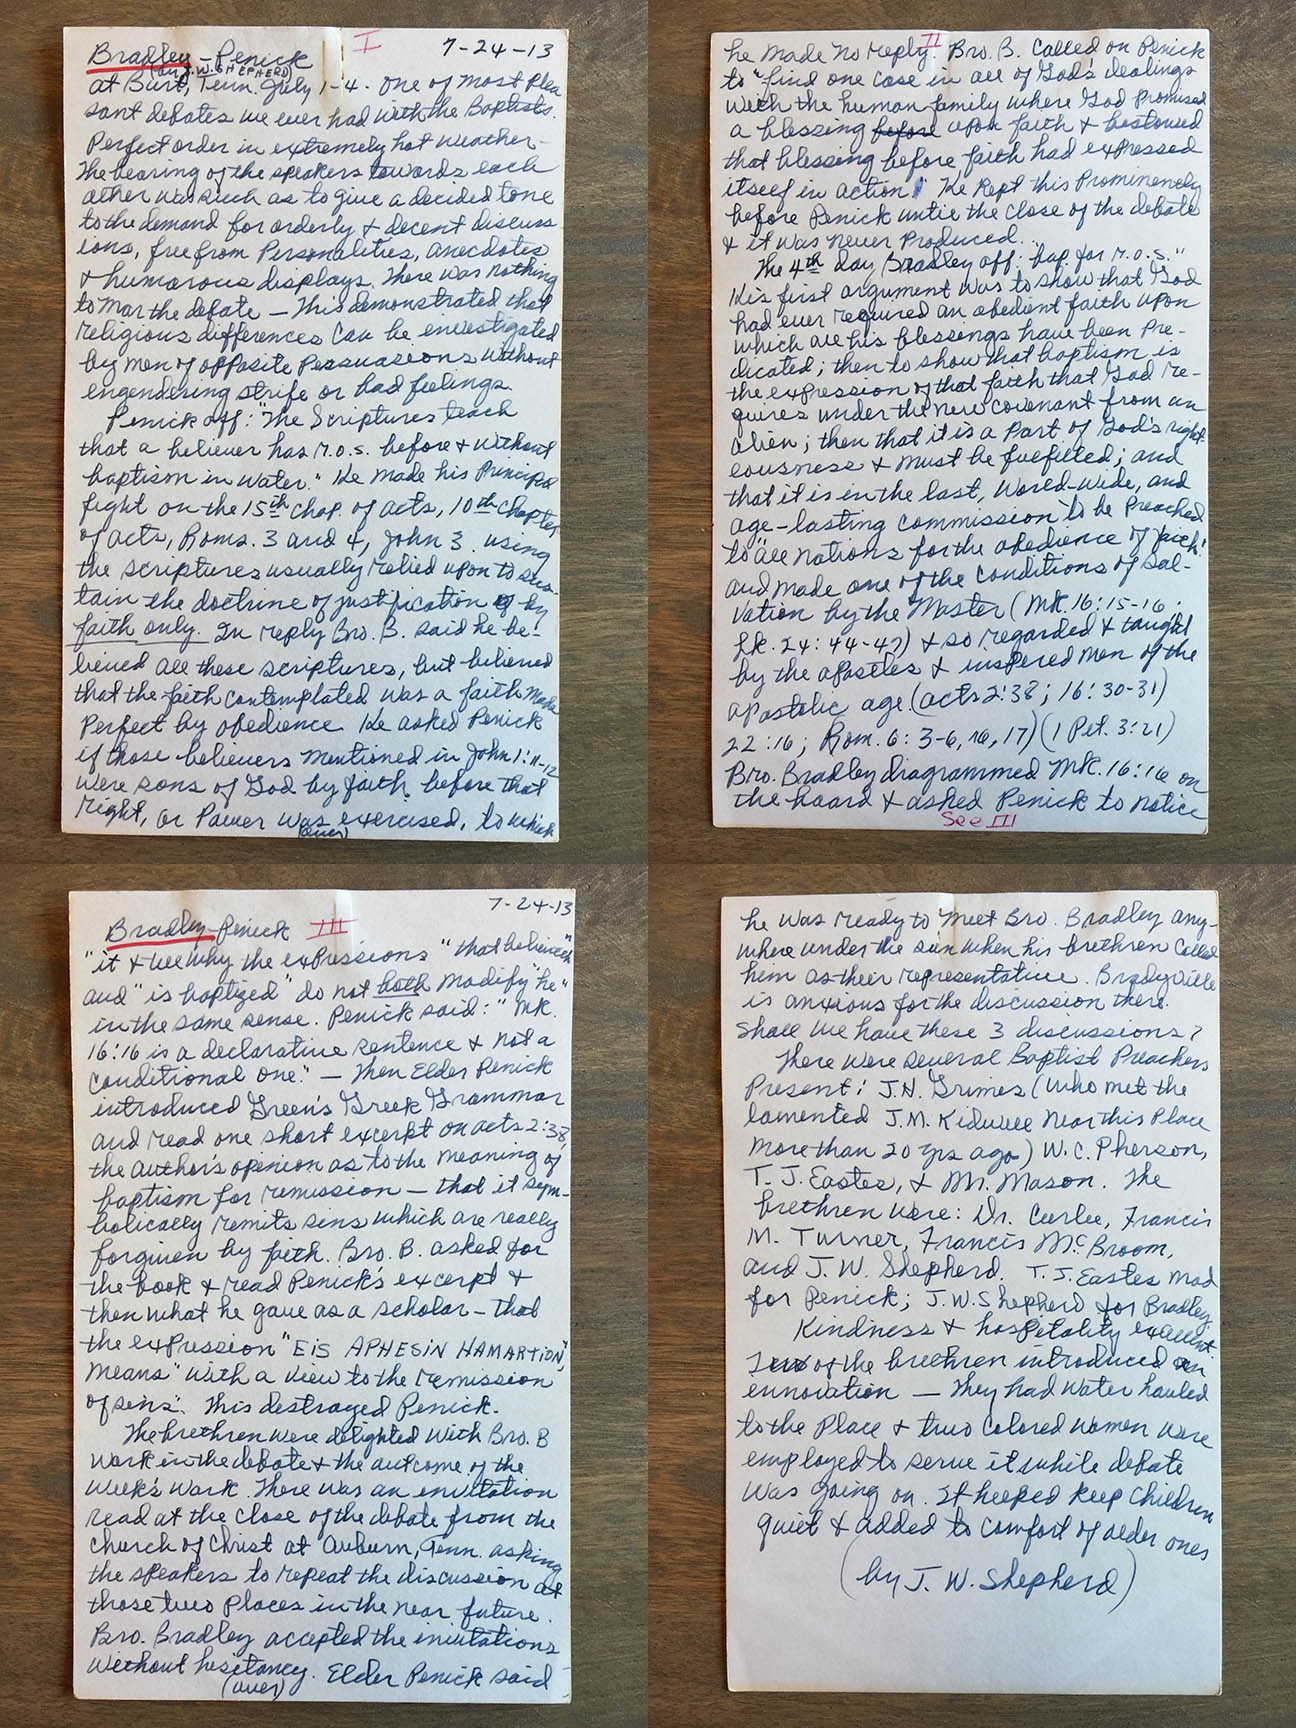 I 7-24-13
Bradley - Penick
(by J.W. SHEPHERD)
at Burt, Tenn. July 1-4. One of most plea
sant debates we ever had with the Baptists.
Perfect order in extremely hot weather -
The bearing of the speakers towards each
other was such as to give a decided tone
to the demand for orderly & decent discuss
ions, free from Personalities, anecdotes
& humorous displays. There was nothing
to Mar the debate — This demonstrated that
religious differences Can be investigated
by men of opposite Persuasions without
engendering strife or bad feelings.
Penick aff: "The Scriptures teach
that a believer has r.o.s. before & without
baptism in water." He made his Principal
fight on the 15th Chap. of acts, 10th Chapter
of acts, Roms. 3 and 4, John 3. using
the scriptures usually relied upon to sus-
tain the doctrine of justification by
faith only. In reply Bro. B. said he be-
lieved all these scriptures, but believed
that the faith contemplated was a faith made
Perfect by obedience. He asked Penick
if those believers mentioned in John 1:11-12
were sons of God by faith before that
right, or Power was exercised, to which
(over)
II
he made no reply. Bro. B. Called on Penick
to "find one case in all of God's dealings
with the human family where God Promised
a blessing before upon faith & bestowed
that blessing before faith had expressed
itself in action" He kept this Prominently
before Penick until the close of the debate
& it was never Produced.
The 4th day Bradley aff: bap. for r.o.s."
His first argument was to show that God
had ever required an obedient faith upon
which all his blessings have been Pre-
dicated; then to show that baptism is
the expression of that faith that God re-
quires under the new covenant from an
alien; then that it is a Part of God's right-
eousness & must be fulfilled; and
that it is in the last, World-Wide, and
age-lasting commission to be Preached
to "all nations for the obedience of faith"
and made one of the conditions of Sal-
vation by the Master (Mk. 16:15-16;
Lk. 24:44-47) & so regarded & taught
by the apostles & inspired men of the
apostolic age (acts 2:38; 16:30-31)
22:16; Rom. 6:3-6, 16, 17) (1 Pet. 3:21)
Bro. Bradley diagrammed Mk. 16:16 on
the board & asked Penick to notice
See III
7-24-13
Bradley-Penick III
"it & tell why the expressions "that believeth"
and "is baptized" do not both modify "he"
in the same sense. Penick said: "Mk.
16:16 is a declarative sentence & not a
conditional one." — Then Elder Penick
introduced Green's Greek Grammar
and read one short excerpt on acts 2:38,
the author's opinion as to the meaning of
baptism for remission — that it sym-
bolically remits sins which are really
forgiven by faith. Bro. B. asked for
the book & read Penick's excerpt &
then what he gave as a scholar — that
the expression "EIS APHESIN HAMARTION",
means "with a view to the remission
of sins". This destroyed Penick.
The brethren were delighted with Bro. B
work in the debate & the outcome of the
week's work. There was an invitation
read at the close of the debate from the
church of Christ at Auburn, Tenn. asking
the speakers to repeat the discussion at
those two places in the near future.
Bro. Bradley accepted the invitations
without hesitancy. Elder Penick said
(over)
he was ready to meet Bro. Bradley any-
where under the sun when his brethren called
him as their representative. Bradyville
is anxious for the discussion there.
Shall we have these 3 discussions?
There were several Baptist Preachers
Present: J.N. Grimes (who met the
lamented J.M. Kidwell near this Place
more than 20 yrs ago) W.C. Pherson,
T. J. Eastes, & Mr. Mason. The
brethren were: Dr. Curlee, Francis
M. Turner, Francis McBroom,
and J. W. Shepherd. T. J. Eastes mod
for Penick; J.W. Shepherd for Bradley.
Kindness & hospitality excellent.
of the brethren introduced an
innovation — They had water hauled
to the Place & two colored women were
employed to serve it while debate
was going on. It helped keep Children
quiet & added to comfort of older ones
(by J. W. Shepherd)